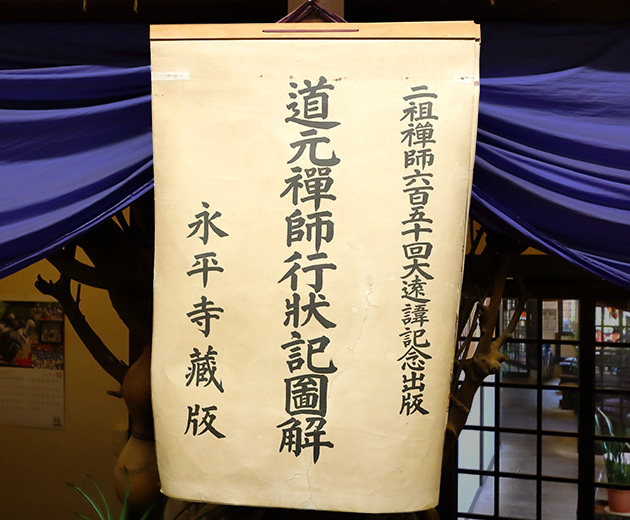 二祖禪師六百五十回大遠諱記念出版
道元禪師行狀記圖解
永平寺藏版